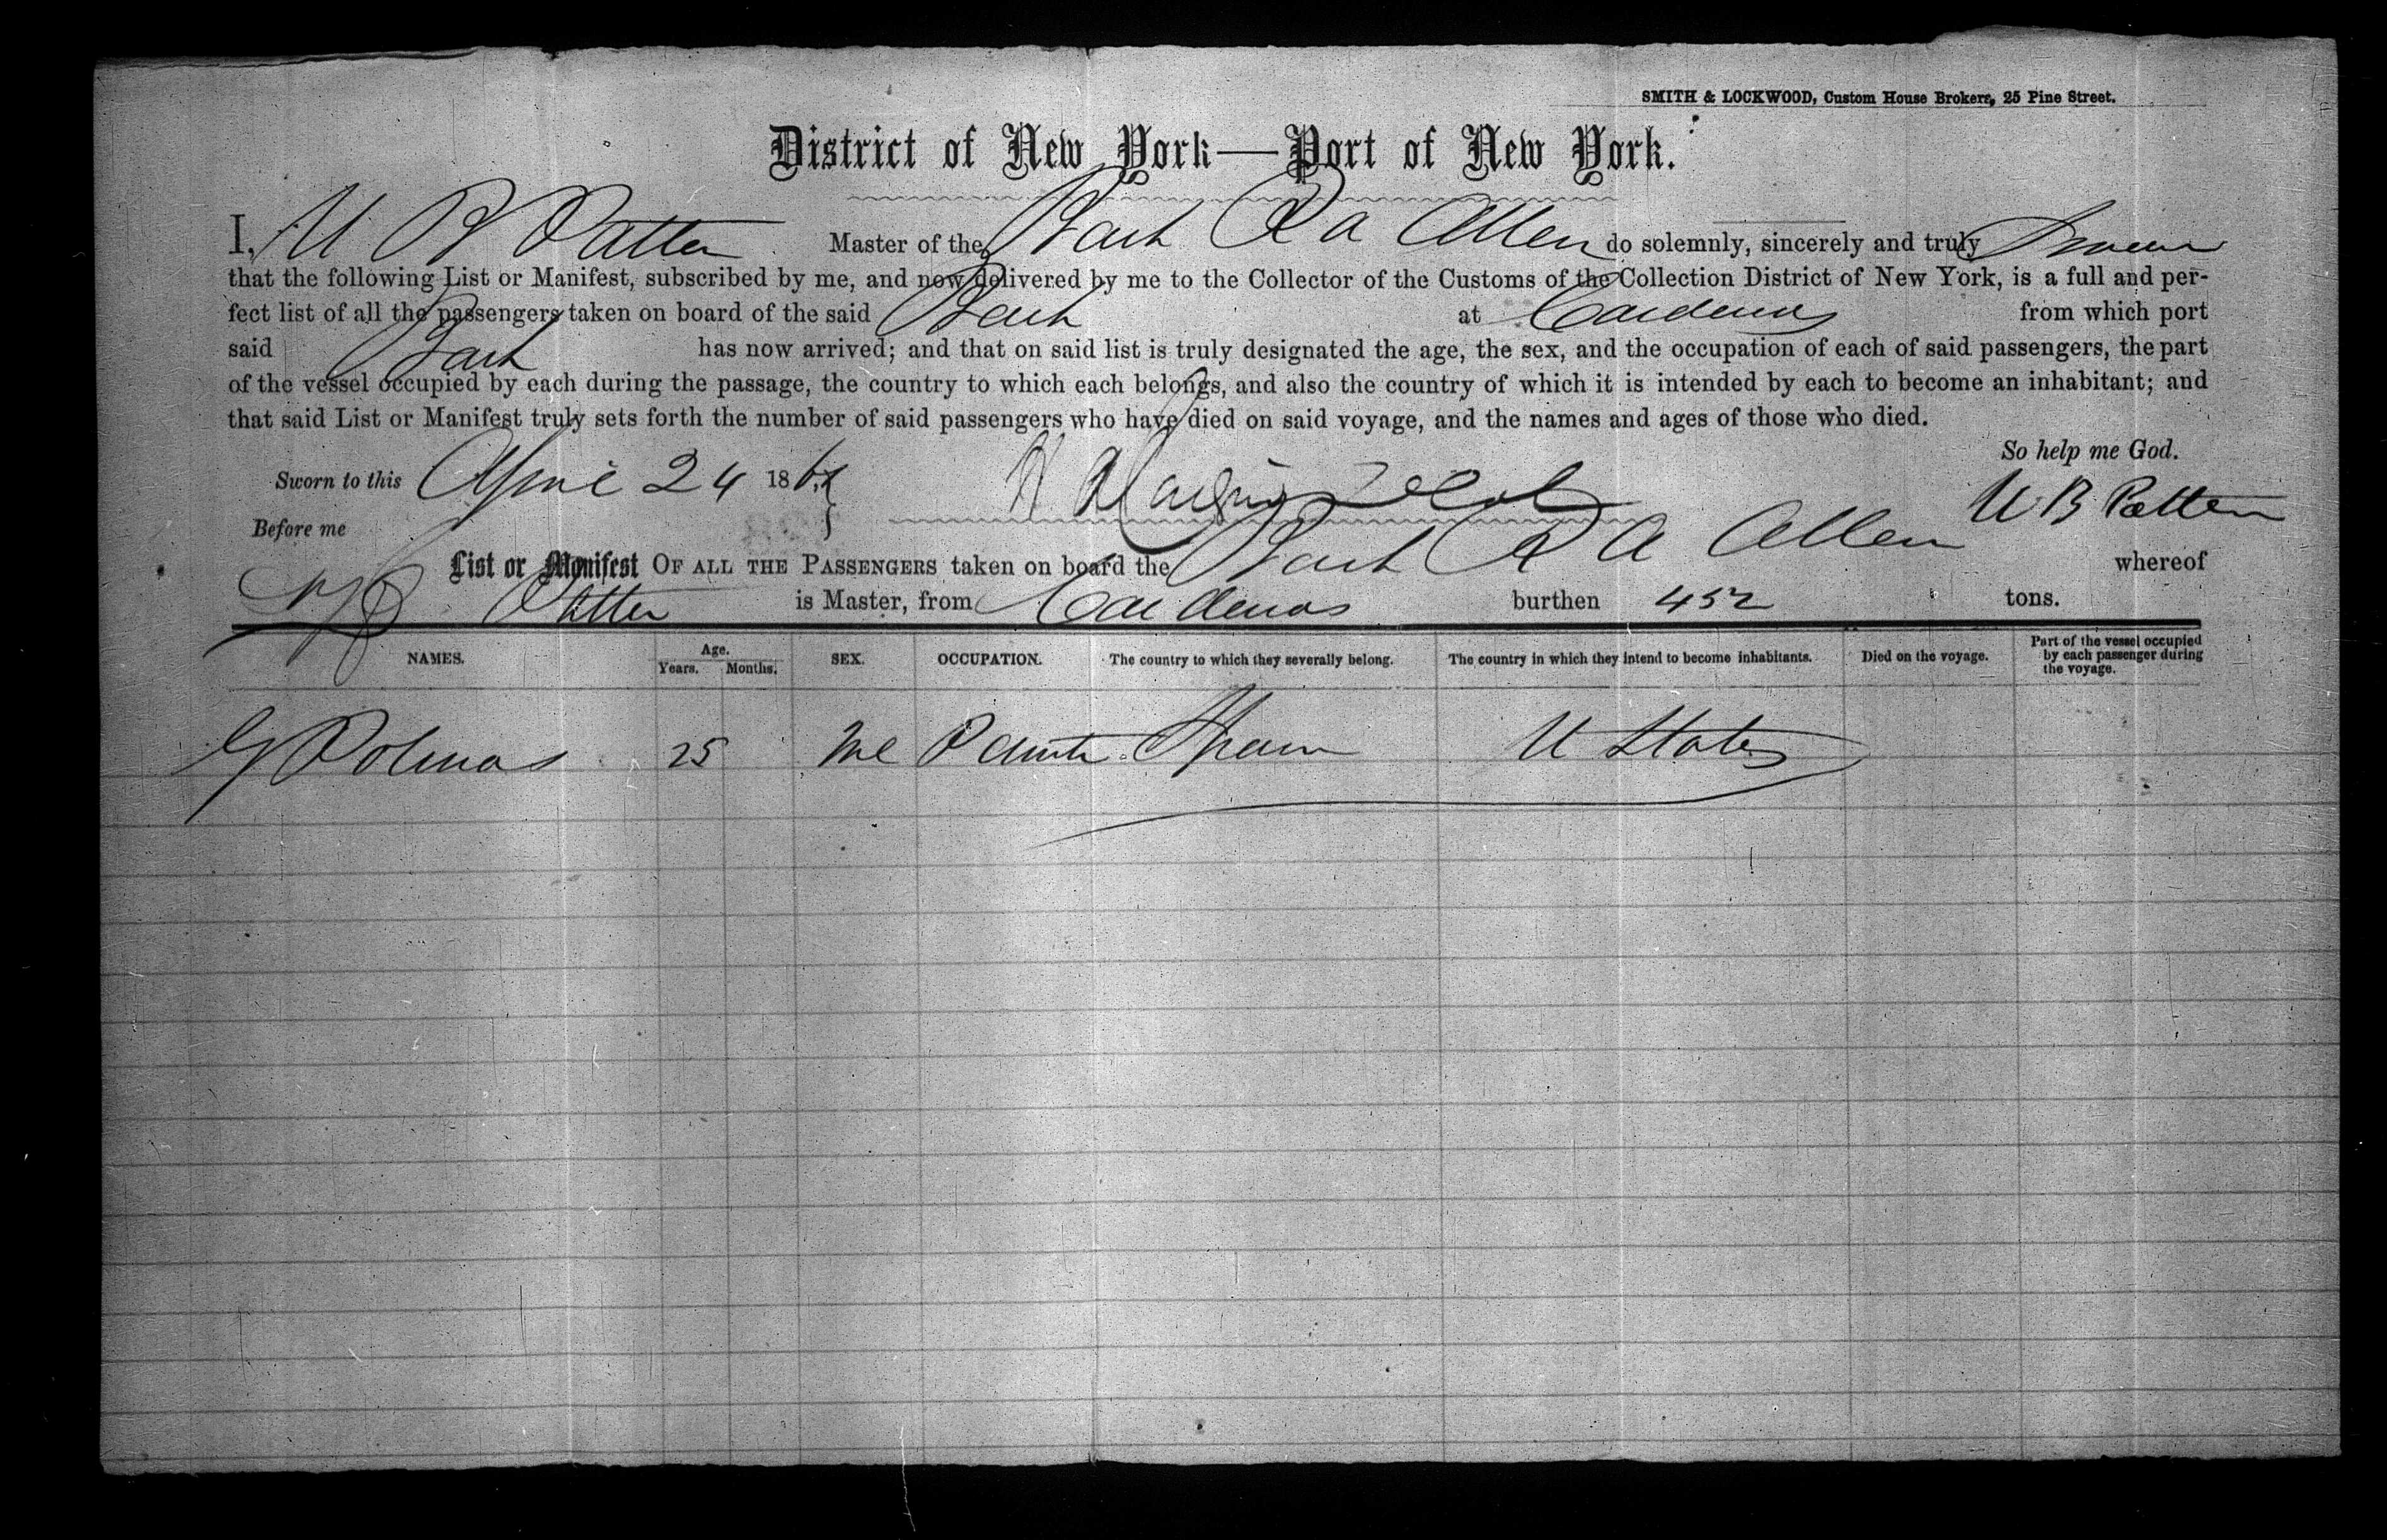 SMITH & LOCKWOOD, Custom House Brokers, 25 Pine Street.
District of New York—Port of New York.
I, W B Patten Master of the Bark R A Allen do solemnly, sincerely and truly Swear
that the following List or Manifest, subscribed by me, and now delivered by me to the Collector of the Customs of the Collection District of New York, is a full and per-
fect list of all the passengers taken on board of the said Bark at Cardenas from which port
said Bark has now arrived; and that on said list is truly designated the age, the sex, and the occupation of each of said passengers, the part
of the vessel occupied by each during the passage, the country to which each belongs, and also the country of which it is intended by each to become an inhabitant; and
that said List or Manifest truly sets forth the number of said passengers who have died on said voyage, and the names and ages of those who died.
So help me God.
Sworn to this April 24 186
W B Patten
Before me
List or Manifest OF ALL THE PASSENGERS taken on board the Bark R A Allen whereof
W B Patten is Master, from Cardenas burthen 452 tons.
NAMES. Age. Years. Months. SEX. OCCUPATION. The country to which they severally belong. The country in which they intend to become inhabitants. Died on the voyage. Part of the vessel occupied by each passenger during the voyage.
G 25 Me Spain U States